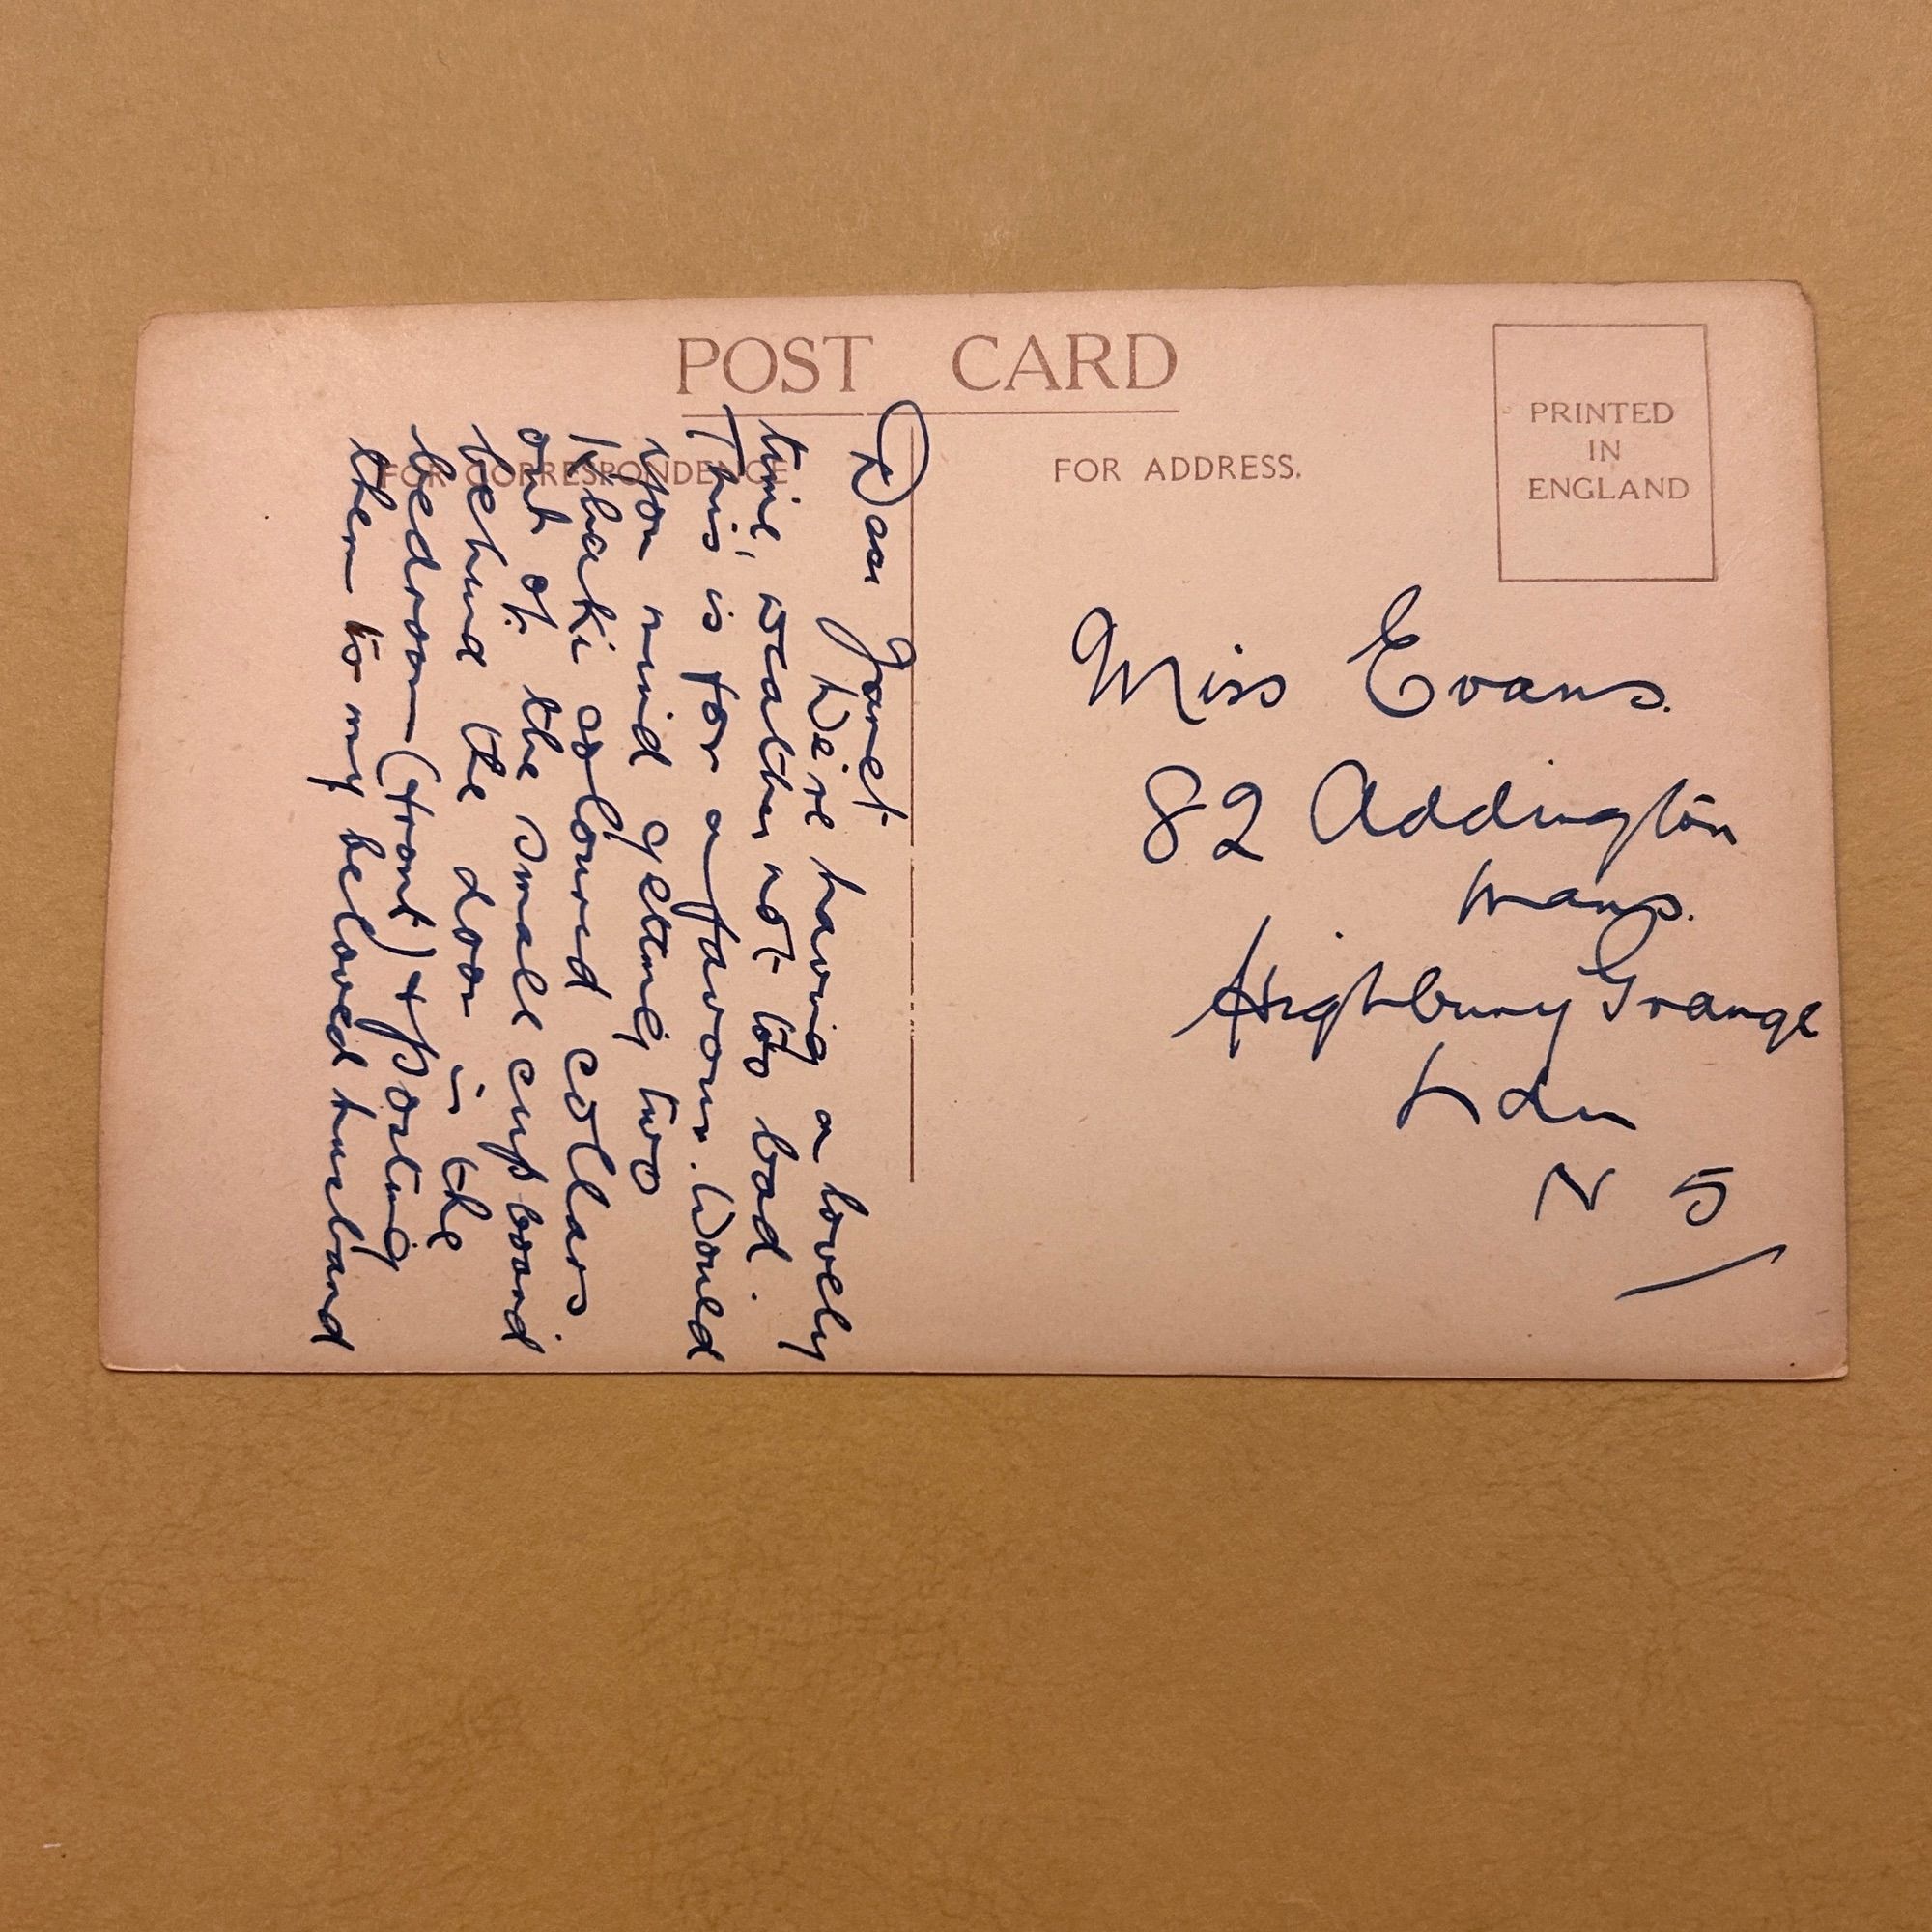 POST CARD
FOR CORRESPONDENCE
FOR ADDRESS.
PRINTED
IN
ENGLAND
Dear Janet
We're having a lovely
time, weather not too bad.
This is for a favour. Would
you mind getting two
Khaki coloured collars
out of the small cupboard
behind the door in the
bedroom (front) & posting
them to my beloved husband
Miss Evans.
82 Addington
Mans.
Highbury Grange
Ldn
N 5